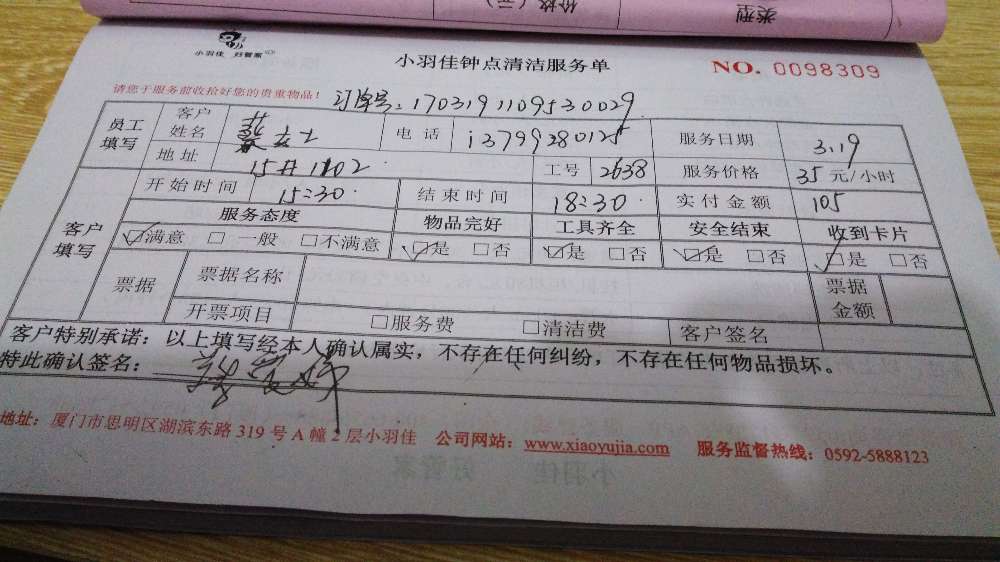 价格（元）
类型
小羽佳 好管家
小羽佳钟点清洁服务单
NO. 0098309
请您于服务前收拾好您的贵重物品！
订单号：1703191109530029
员工填写
客户姓名 蔡女士 电话 13799280125 服务日期 3.19
地址 15# 1102 工号 2638 服务价格 35 元/小时
客户填写
开始时间 15:30 结束时间 18:30 实付金额 105
服务态度 物品完好 工具齐全 安全结束 收到卡片
☑满意 □ 一般 □不满意 ☑是 □否 ☑是 □否 ☑是 □否 ☑是 □否
票据 票据名称 票据金额
开票项目 □服务费 □清洁费 客户签名
客户特别承诺：以上填写经本人确认属实，不存在任何纠纷，不存在任何物品损坏。
特此确认签名：
地址：厦门市思明区湖滨东路 319 号 A 幢 2 层小羽佳 公司网站：www.xiaoyujia.com 服务监督热线：0592-5888123